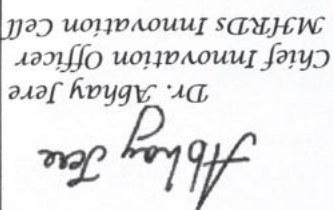 Abhay Jere
Dr. Abhay Jere
Chief Innovation Officer
MHRDs Innovation Cell